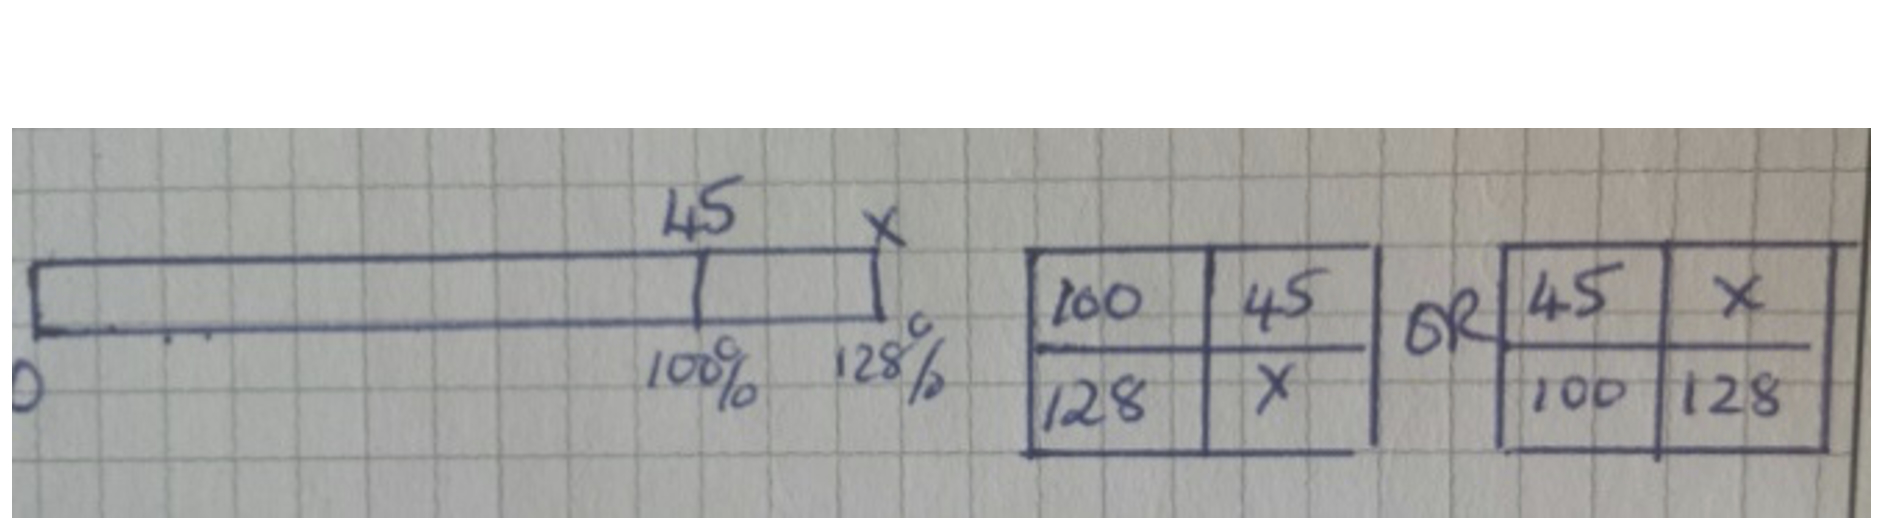 45 X
0 100% 128%
100 45
128 X
OR
45 X
100 128